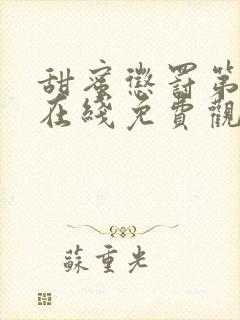 甜蜜懲罰第
在綫免費觀
蘇重光